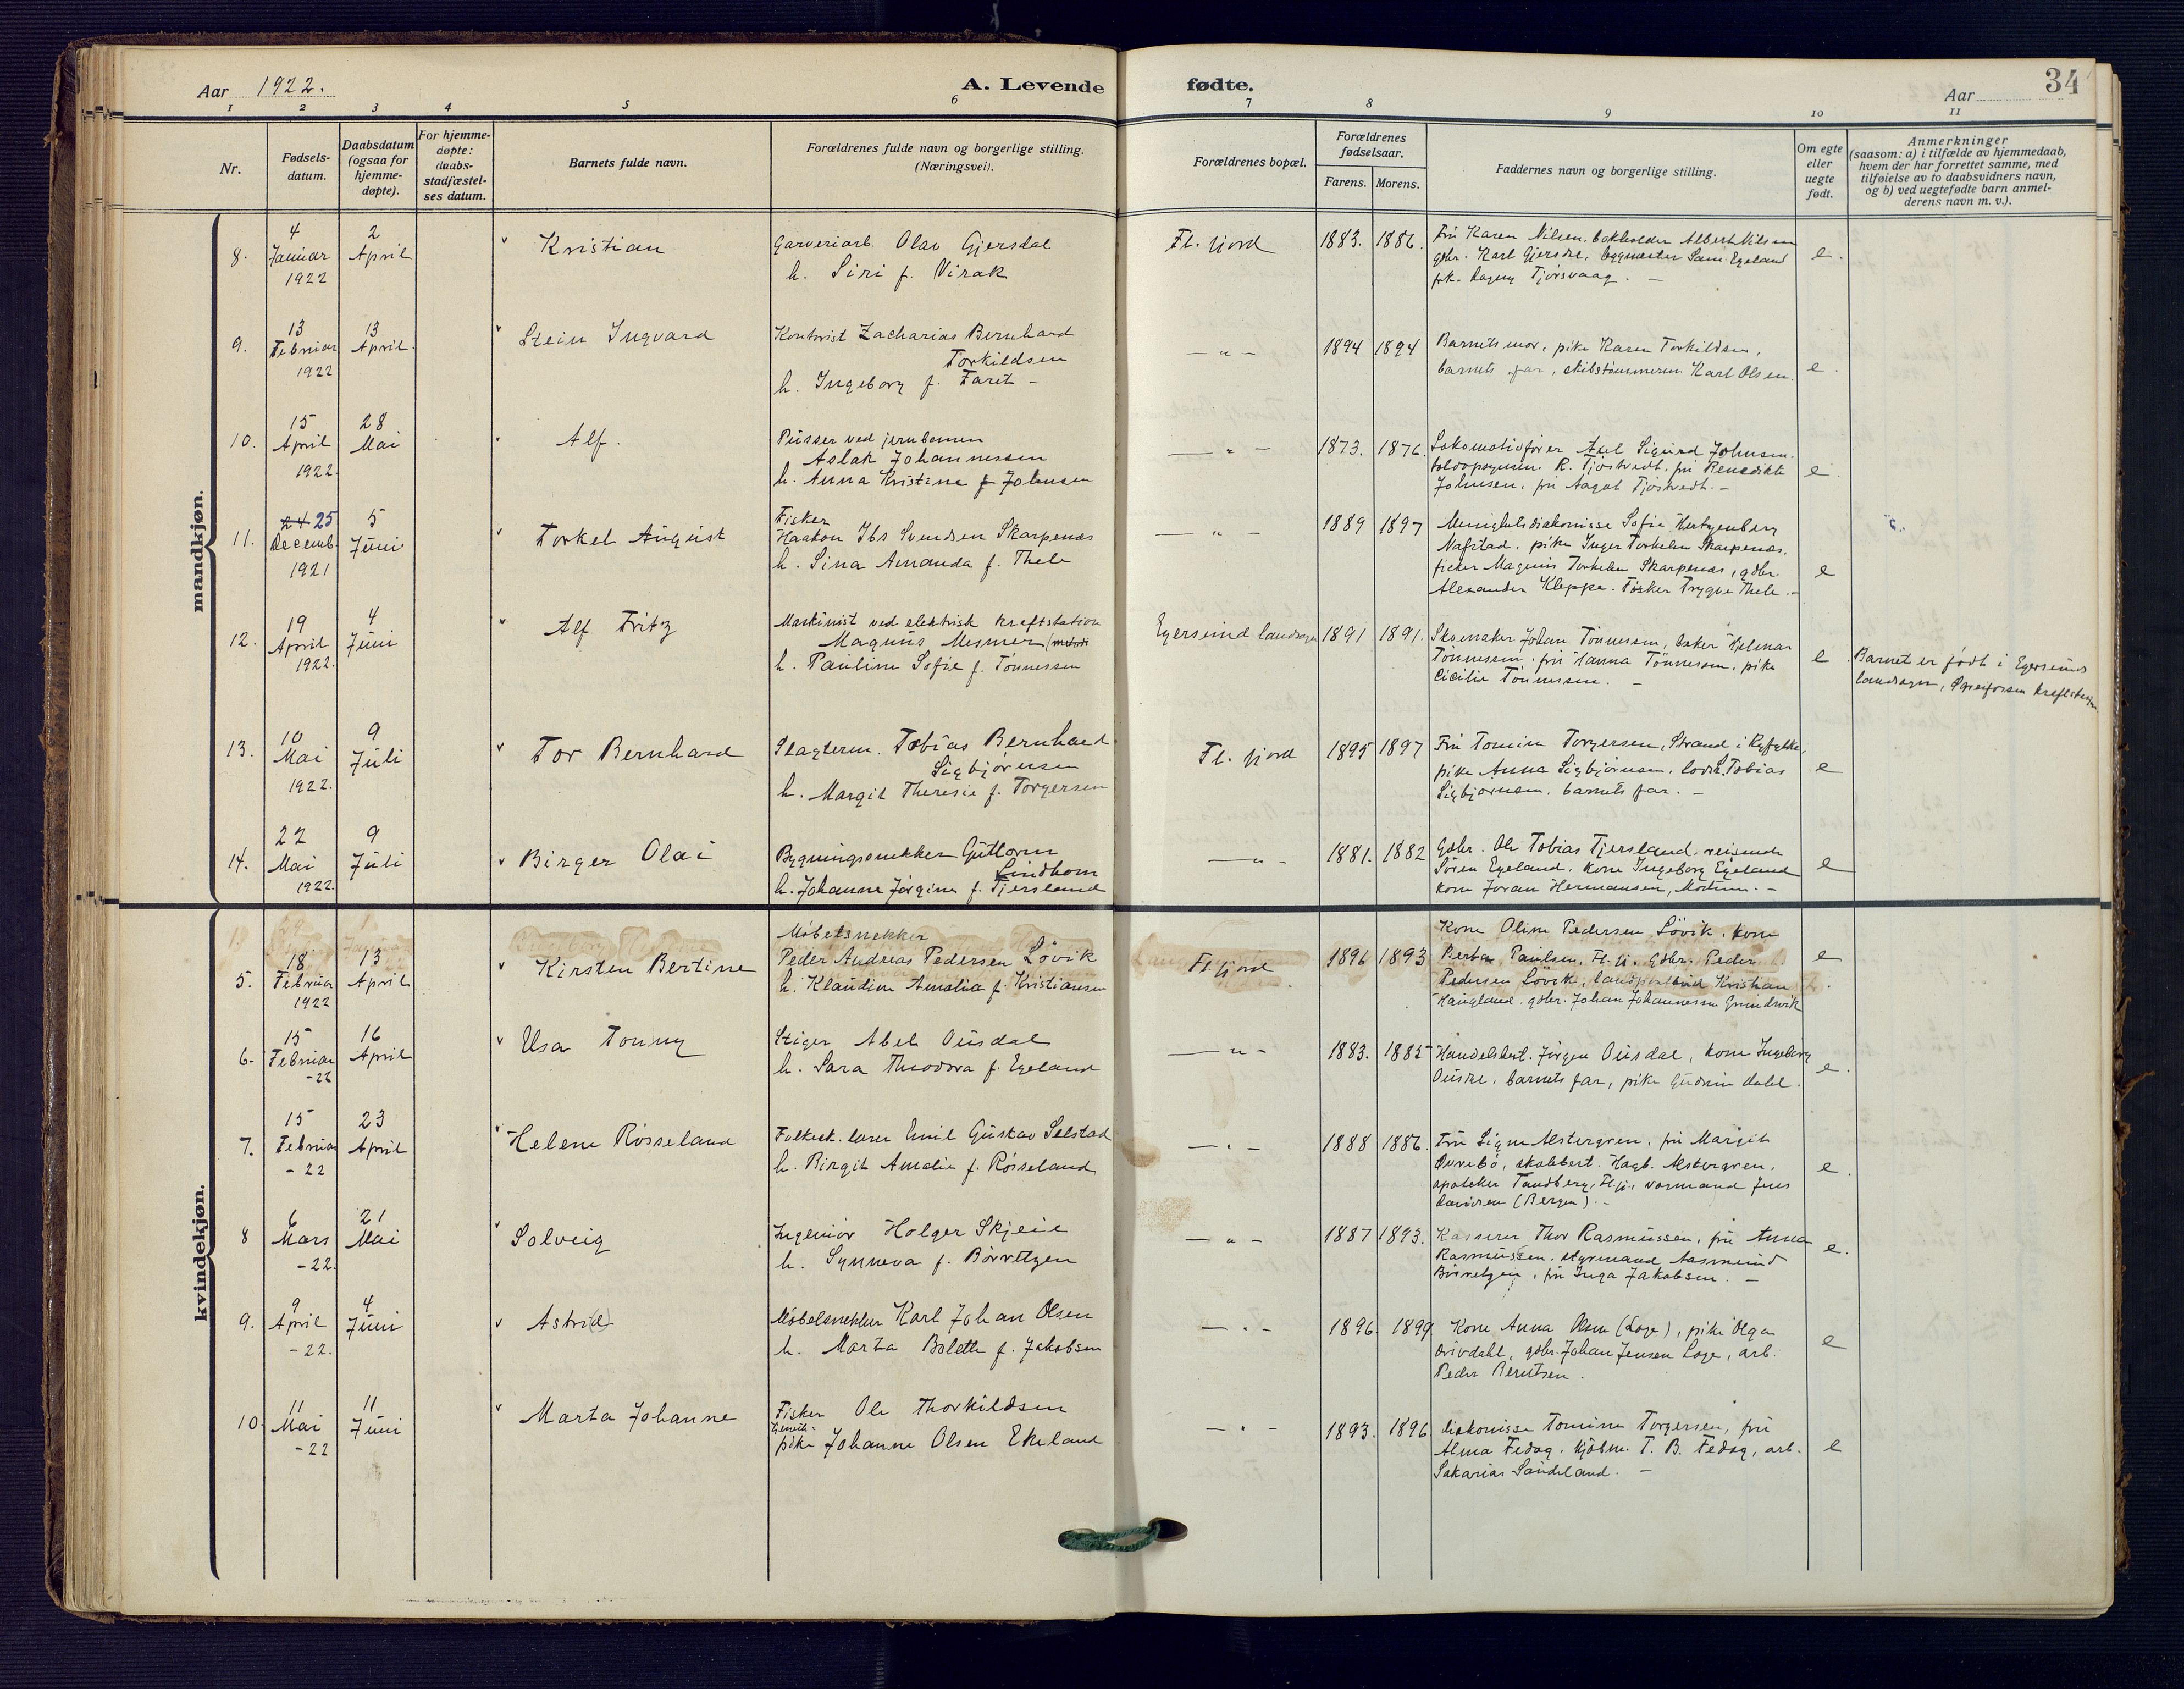 Aar 1922.
A. Levende fødte.
Aar
34
1 2 3 4 5 6 7 8 9 10 11
Nr.
Fødsels-
datum.
Daabsdatum
(ogsaa for
hjemme-
døpte).
For hjemme-
døpte:
daabs-
stadfæstel-
ses datum.
Barnets fulde navn.
Forældrenes fulde navn og borgerlige stilling.
(Næringsvei).
Forældrenes bopæl.
Forældrenes
fødselsaar.
Farens. Morens.
Faddernes navn og borgerlige stilling.
Om egte
eller
uegte
født.
Anmerkninger
(saasom: a) i tilfælde av hjemmedaab,
hvem der har forrettet samme, med
tilføielse av to daabsvidners navn,
og b) ved uegtefødte barn anmel-
derens navn m. v.).
mandkjøn.
8.
4
Januar
1922
2
April
Kristian
Garveriarb. Olav Gjersdal
h. Siri f. Virak
Fl. fjord
1883. 1886.
Fru Karen Nilsen, bokholder Albert Nilsen
gdbr. Karl Gjersdal, byggmester Sam. Egeland
frk. Dagny Tjørsvaag. –
e.
9.
13
Februar
1922
13
April.
Stein Ingvard
Kontorist Zacharias Bernhard
Torkildsen
h. Ingeborg f. Faret –
— " –
1894 1894
Barnets mor, pike Karen Torkildsen,
barnets far, skibstømmerm. Karl Olsen.
e.
10.
15
April
1922.
28
Mai
Alf.
Pusser ved jernbanen
Aslak Johannessen
h. Anna Kristine f Johnsen
— " –
1873. 1876.
Lokomotivfører Axel Sigurd Johnsen.
toldopsynsm. R. Tjøstvedt, fru Benedikte
Johnsen, fru Aagot Tjøstvedt. –
e.
11.
24 25
Decemb.
1921
5
Juni
Torkel August
Fisker
Haakon Ibs Svendsen Skarpenes
h. Sina Amanda f. Thele
— " –
1889 1897
Menighetsdiakonisse Sofie Hertzenberg
Nafstad, pike Inger Torkelsen Skarpenes,
fisker Magnus Torkelsen Skarpenes, gdbr.
Alexander Kleppe. Fisker Trygve Thele. –
e
12.
19
April
1922.
4
Juni
Alf Fritz
Maskinist ved elektrisk kraftstation
Magnus Mesmer
h. Pauline Sofie f. Tønnessen
Egersund landsogn
1891 1891.
Skomaker Johan Tønnessen, Helmar
Tønnessen, fru Hanna Tønnessen, pike
Cicilie Tønnessen. –
e
Barnet er født i Egersunds
landsogn,
13.
10
Mai
1922.
9
Juli
Tor Bernhard
Slagterm. Tobias Bernhard
Sigbjørnsen
h. Margit Theresie f. Torgersen
Fl. fjord
1895 1897
Fru Tomine Torgersen, Strand i Ryfylke,
pike Anna Sigbjørnsen, Tobias
Sigbjørnsen, barnets far. –
e
14.
22
Mai
1922.
9
Juli
Birger Olai
Bygningssnekker Guttorm
Lindhom
h. Johanne Jørgine f. Tjersland
— " –
1881. 1882
Gdbr. Ole Tobias Tjersland, reisende
Søren Egeland, kone Ingeborg Egeland
kone Joran Hermansen, Modum. –
e
kvindekjøn.
5.
18
Februar
1922
13
April
Kirsten Bertine
Møbelsnekker
Peder Andreas Pedersen Løvik
h. Klaudine Amalia f. Kristiansen
Fl. fjord
1896 1893
Kone Oline Pedersen Løvik, kone
Berta Paulsen, Fl. fj. gdbr. Peder
Pedersen Løvik, Kristian
Haugland, gdbr. Johan Johannessen Grundevik
e
6.
15
Februar
-22
16
April
Elsa Tonny
Stiger Abel Ousdal
h. Sara Theodora f. Egeland
— " –
1883. 1885
Handelsbest. Jørgen Ousdal, kone Ingeborg
Ousdal, barnets far, pike Gudrun Dahl.
e.
7.
15
Februar
- 22
23
April
Helene Røsseland
Folkesk. lærer Emil Gustav Selstad
h. Birgit Amalie f. Røsseland
— " –
1888 1886.
Fru Signe Alstergren, fru Margit
Øvrebø, skolebest. Hagb. Alstergren,
apoteker Tandberg, Fl.fj., vormand Jens
Davidsen (Bergen). –
e.
8
6
Mars
-22.
21
Mai
Solveig
Ingeniør Holger Skjeie
h. Synneva f. Børretzen
— " –
1887 1893.
Kasserer Thor Rasmussen, fru Anna
Rasmussen, styrmand Aasmund
Børretzen, fru Inga Jakobsen. –
e.
9.
9
April
-22.
4
Juni
Astri(d)
Møbelsnekker Karl Johan Olsen
h. Marta Bolette f. Jakobsen
— " –
1896 1899
Kone Anna Olsen (Loge), pike Olga
Drivdahl, gdbr. Johan Jensen Loge, arb.
Peder Berntsen.
e
10.
11
Mai
-22
11
Juni
Marta Johanne
Fisker Ole Thorkildsen
pike Johanne Olsen Ekeland
— " –
1893. 1896
Diakonisse Tomine Torgersen, fru
Alma Fedog, kjøbm. T. B. Fedog, arb.
Sakarias Sandeland. –
e